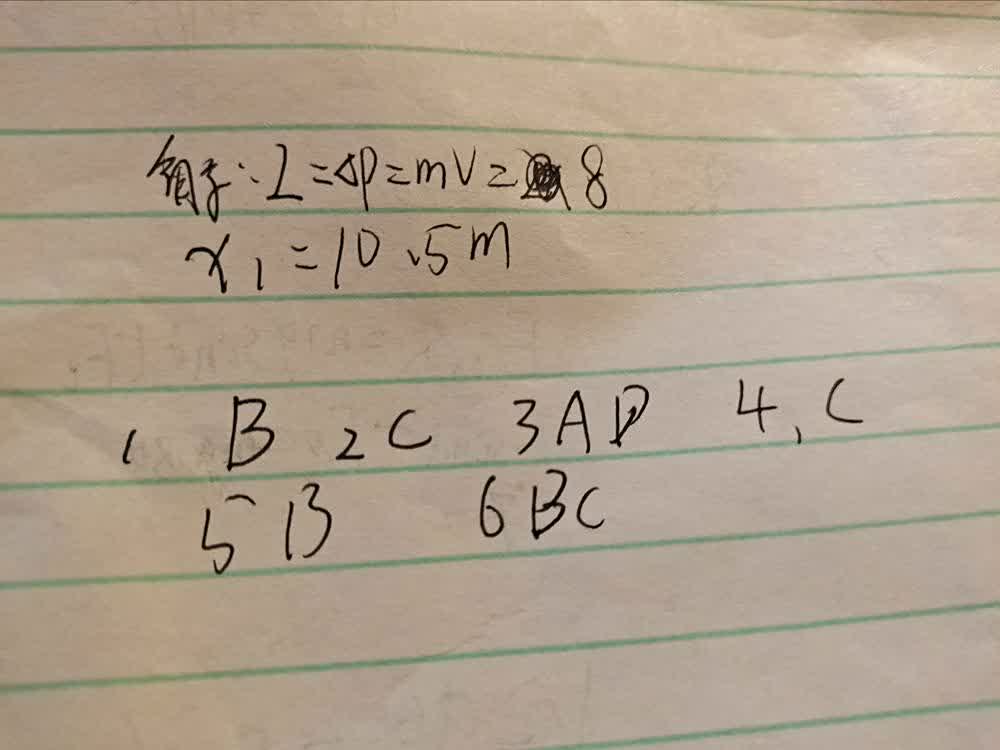 I=Δp=mV= 8
x₁=10.5m
1 B 2 C 3 A D 4, C
5 B 6 BC